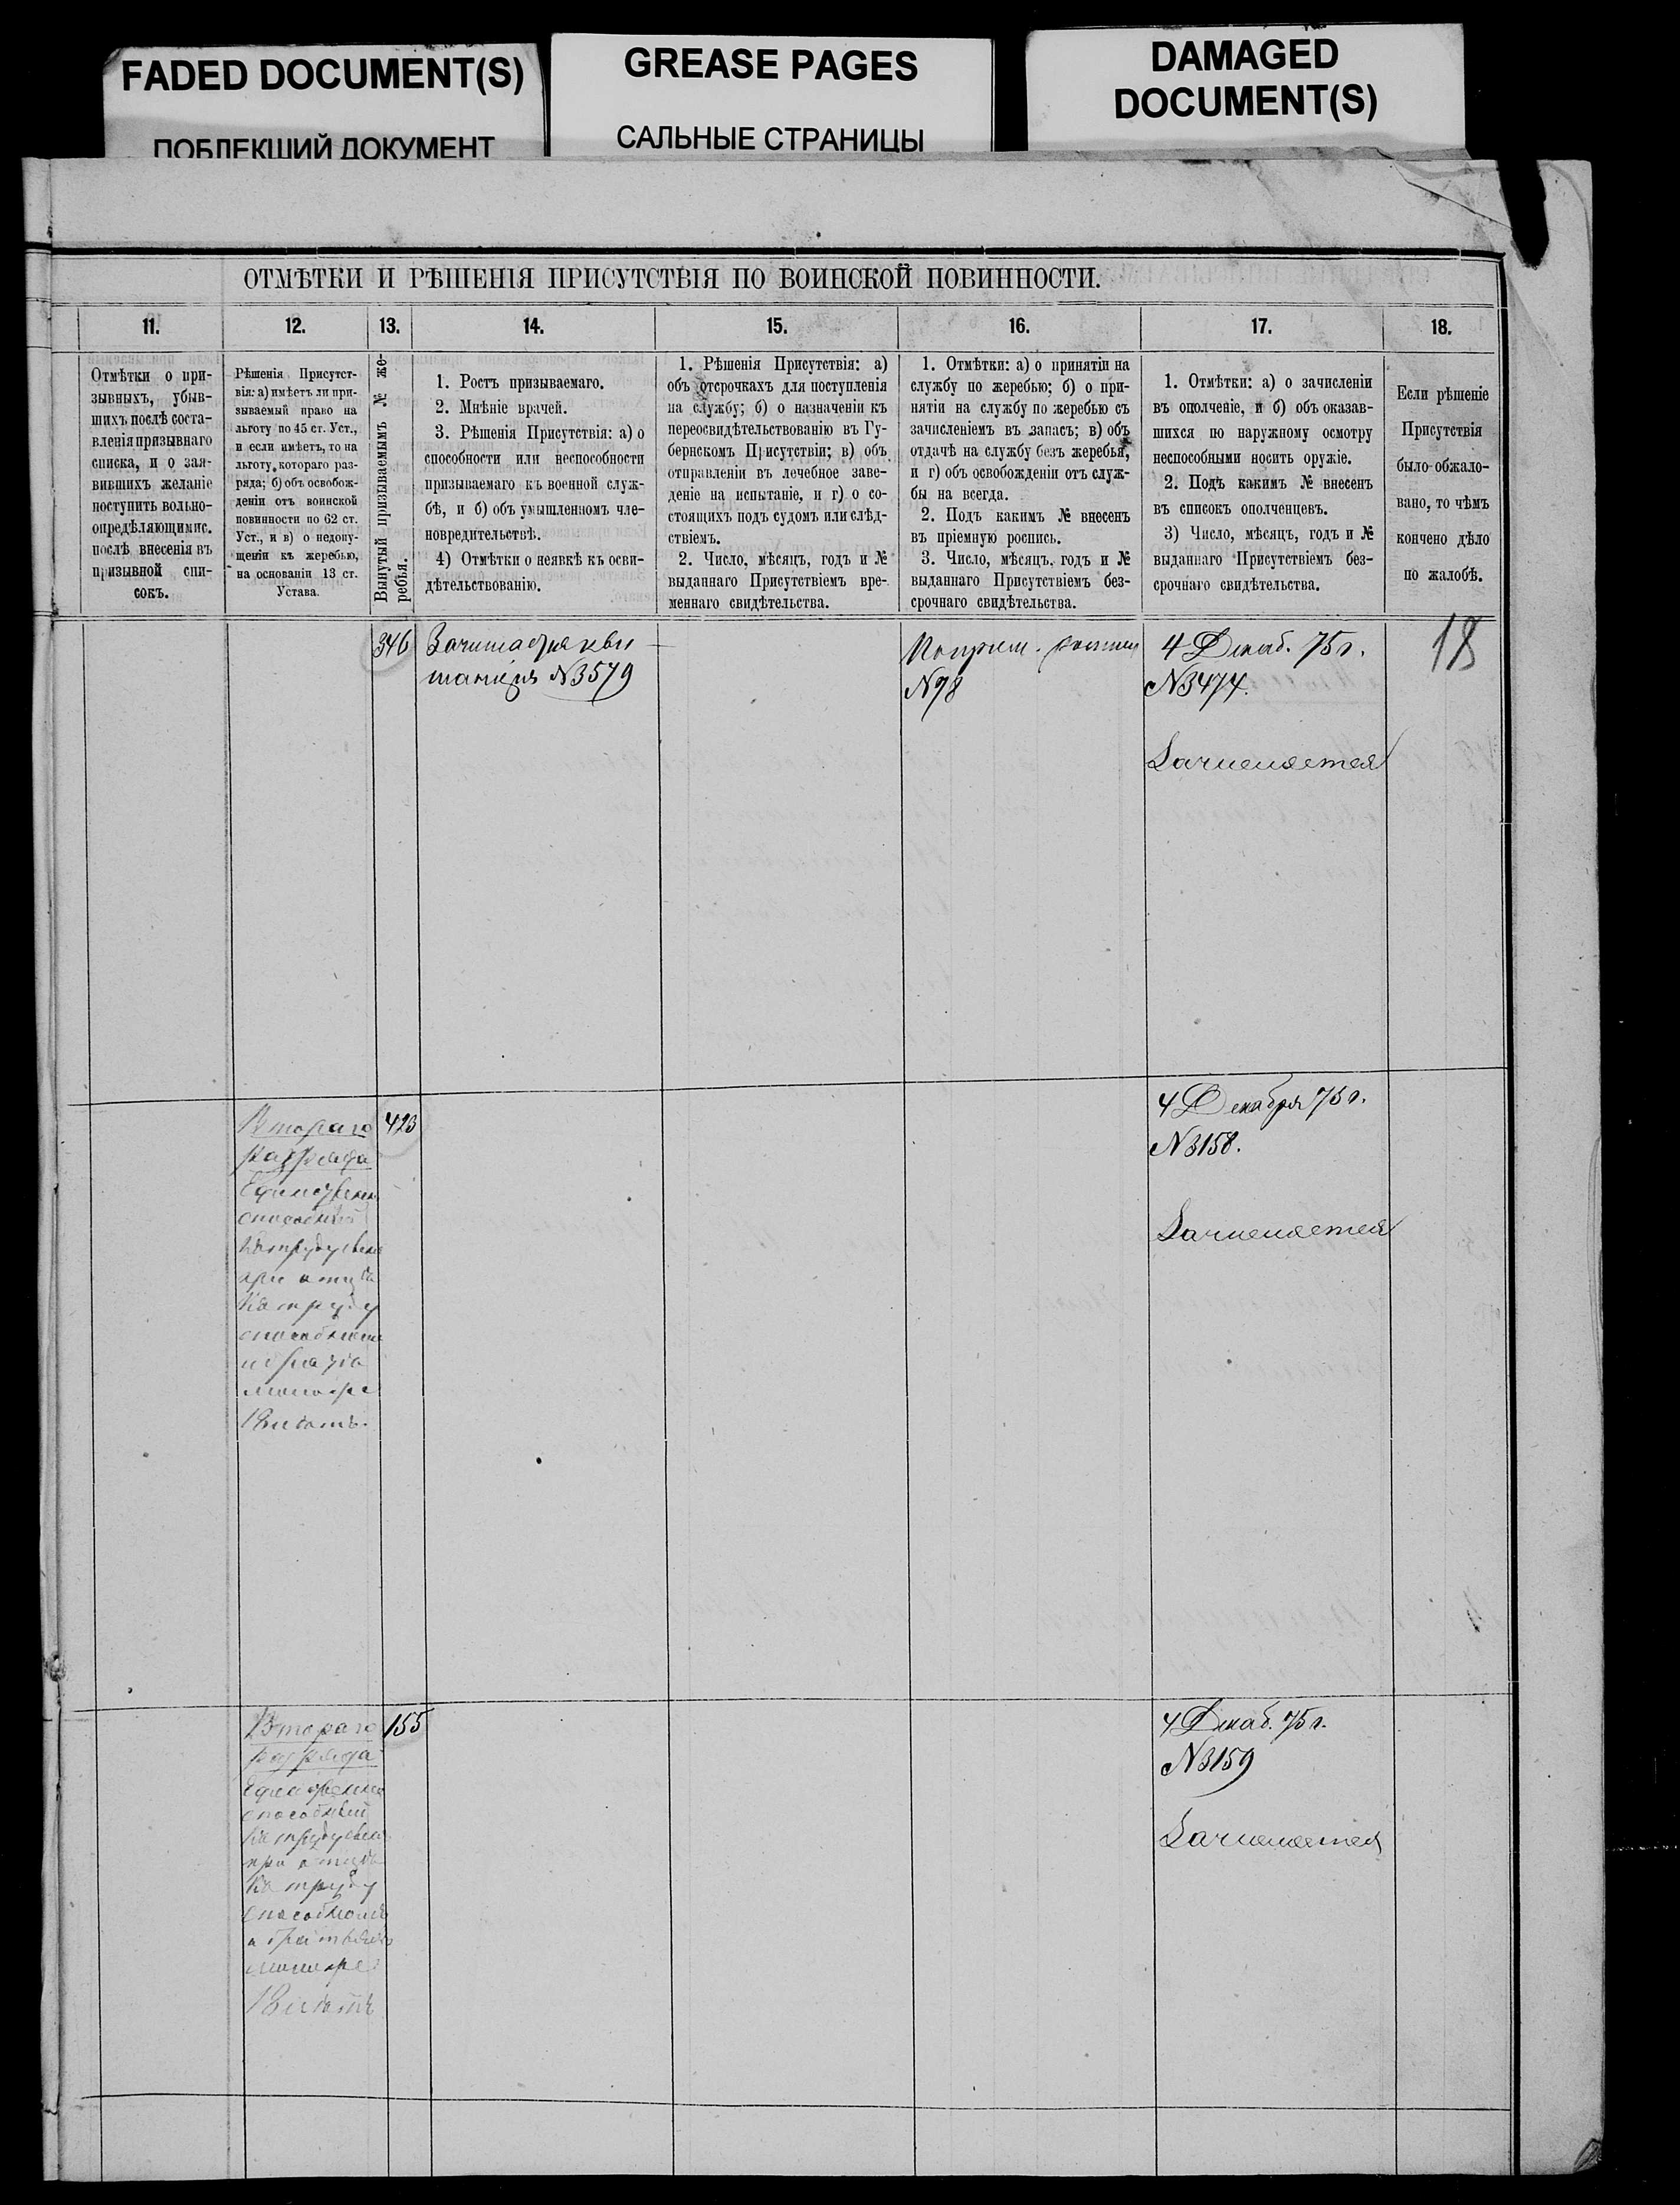 FADED DOCUMENT(S)
ПОБЛЕКШИЙ ДОКУМЕНТ
GREASE PAGES
САЛЬНЫЕ СТРАНИЦЫ
DAMAGED
DOCUMENT(S)
ОТМѢТКИ И РѢШЕНІЯ ПРИСУТСТВІЯ ПО ВОИНСКОЙ ПОВИННОСТИ.
11.
12.
13.
14.
15.
16.
17.
18.
Отмѣтки о при-
зывныхъ, убыв-
шихъ послѣ соста-
вленія призывнаго
списка, и о зая-
вившихъ желаніе
поступить вольно-
опредѣляющимис.
послѣ внесенія въ
призывной спи-
сокъ.
Рѣшенія Присутст-
вія: а) имѣетъ ли при-
зываемый право на
льготу по 45 ст. Уст.,
и если имѣетъ, то на
льготу котораго раз-
ряда; б) объ освобож-
деніи отъ воинской
повинности по 62 ст.
Уст., и в) о недопу-
щеніи къ жеребью,
на основаніи 13 ст.
Устава.
Вынутый призываемымъ № же-
ребья.
1. Ростъ призываемаго.
2. Мнѣніе врачей.
3. Рѣшенія Присутствія: а) о
способности или неспособности
призываемаго къ военной служ-
бѣ, и б) объ умышленномъ чле-
новредительствѣ.
4) Отмѣтки о неявкѣ къ осви-
дѣтельствованію.
1. Рѣшенія Присутствія: а)
объ отсрочкахъ для поступленія
на службу; б) о назначеніи къ
переосвидѣтельствованію въ Гу-
бернскомъ Присутствіи; в) объ
отправленіи въ лечебное заве-
деніе на испытаніе, и г) о со-
стоящихъ подъ судомъ или слѣд-
ствіемъ.
2. Число, мѣсяцъ, годъ и №
выданнаго Присутствіемъ вре-
меннаго свидѣтельства.
1. Отмѣтки: а) о принятіи на
службу по жеребью; б) о при-
нятіи на службу по жеребью съ
зачисленіемъ въ запасъ; в) объ
отдачѣ на службу безъ жеребья,
и г) объ освобожденіи отъ служ-
бы на всегда.
2. Подъ какимъ № внесенъ
въ пріемную роспись.
3. Число, мѣсяцъ, годъ и №
выданнаго Присутствіемъ без-
срочнаго свидѣтельства.
1. Отмѣтки: а) о зачисленіи
въ ополченіе, и б) объ оказав-
шихся по наружному осмотру
неспособными носить оружіе.
2. Подъ какимъ № внесенъ
въ списокъ ополченцевъ.
3) Число, мѣсяцъ, годъ и №
выданнаго Присутствіемъ без-
срочнаго свидѣтельства.
Если рѣшеніе
Присутствія
было обжало-
вано, то чѣмъ
кончено дѣло
по жалобѣ.
346
Зачищается кви
танція №3579
По прием. росписи
№78
4 Декаб. 75 г.
№3474.
Зачисляется
18
Втораго
разряда
Единствен
способный
къ труду сынъ
при отцѣ
къ труду
способномъ
и братѣ
моложе
18 и лѣтъ.
423
4 Декабря 75 г.
№3158.
Зачисляется
Втораго
разряда
Единственный
способный
къ труду сынъ
при отцѣ
къ труду
способномъ
и братьяхъ
моложе
18 и лѣтъ
155
4 Декаб. 75 г.
№3159
Зачисляется